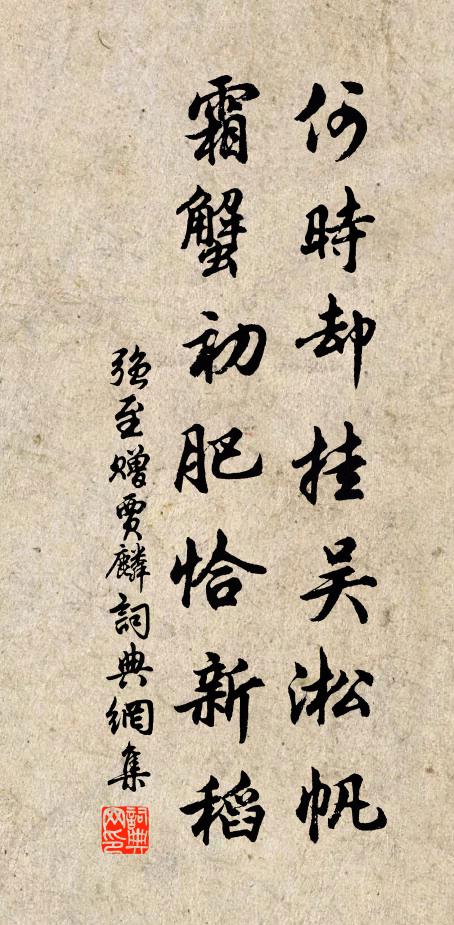 何時却挂吴淞帆
霜蟹初肥恰新稻
强至贈賈麟詞典網集
詞典网印